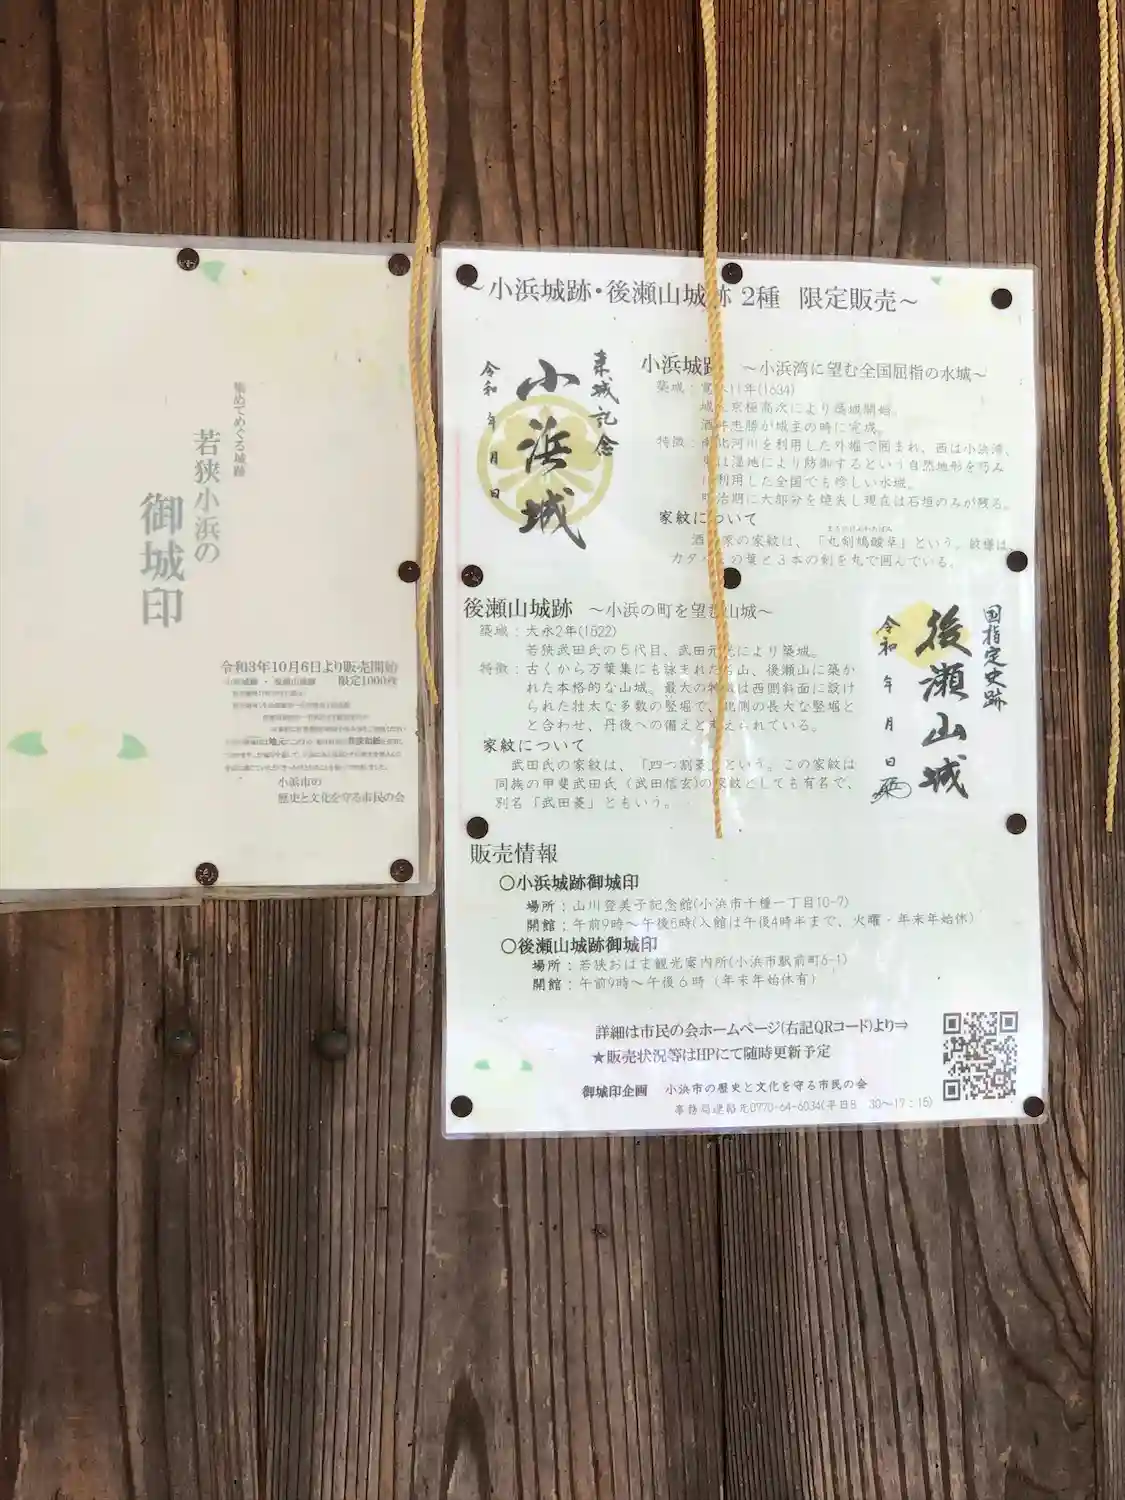 集めてめぐる城跡
若狭小浜の
御城印
令和3年10月6日より販売開始
限定1000枚
小浜市の
歴史と文化を守る市民の会
～小浜城跡・後瀬山城跡 2種 限定販売～
来城記念
小浜城
令和 年 月 日
小浜城跡 ～小浜湾に望む全国屈指の水城～
築城：寛 11年(1634)
城 京極高次により築城開始。
酒井忠勝が城主の時に完成。
特徴：南北河川を利用した外堀で囲まれ、西は小浜湾、
は湿地により防御するという自然地形を巧み
に利用した全国でも珍しい水城。
明治期に大部分を焼失し現在は石垣のみが残る。
家紋について
酒 家の家紋は、「丸剣鳩酸草」という。紋様は、
カタバミの葉と3本の剣を丸で囲んでいる。
後瀬山城跡 ～小浜の町を望む山城～
築城：大永2年(1522)
若狭武田氏の5代目、武田元光により築城。
特徴：古くから万葉集にも詠まれたお山、後瀬山に築か
れた本格的な山城。最大の特徴は西側斜面に設け
られた壮大な多数の竪堀で、北側の長大な竪堀と
と合わせ、丹後への備えと考えられている。
家紋について
武田氏の家紋は、「四つ割菱」という。この家紋は
同族の甲斐武田氏（武田信玄)の家紋としても有名で、
別名「武田菱」ともいう。
国指定史跡
後瀬山城
令和 年 月 日
販売情報
〇小浜城跡御城印
場所：山川登美子記念館(小浜市千種一丁目10-7)
開館：午前9時～午後5時(入館は午後4時半まで、火曜・年末年始休)
〇後瀬山城跡御城印
場所：若狭おばま観光案内所(小浜市駅前町6-1)
開館：午前9時～午後6時（年末年始休有）
詳細は市民の会ホームページ(右記QRコード)より⇒
★販売状況等はHPにて随時更新予定
御城印企画 小浜市の歴史と文化を守る市民の会
事務局連絡先0770-64-6034(平日8 30～17:15)